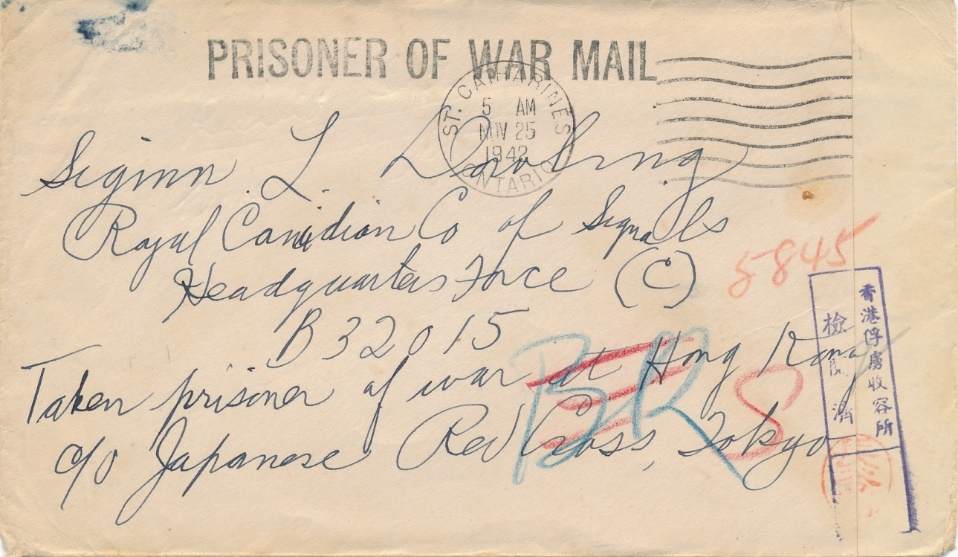 PRISONER OF WAR MAIL
ST. CATHARINES
5 AM
NOV 25
1942
ONTARIO
Sigmn. L. Dowling
Royal Canadian Co of Signals
Headquarters Force (C)
B32015
5845
Taken prisoner of war at Hong Kong
c/o Japanese Red Cross, Tokyo
BR
S
香港俘虜收容所
檢閱濟